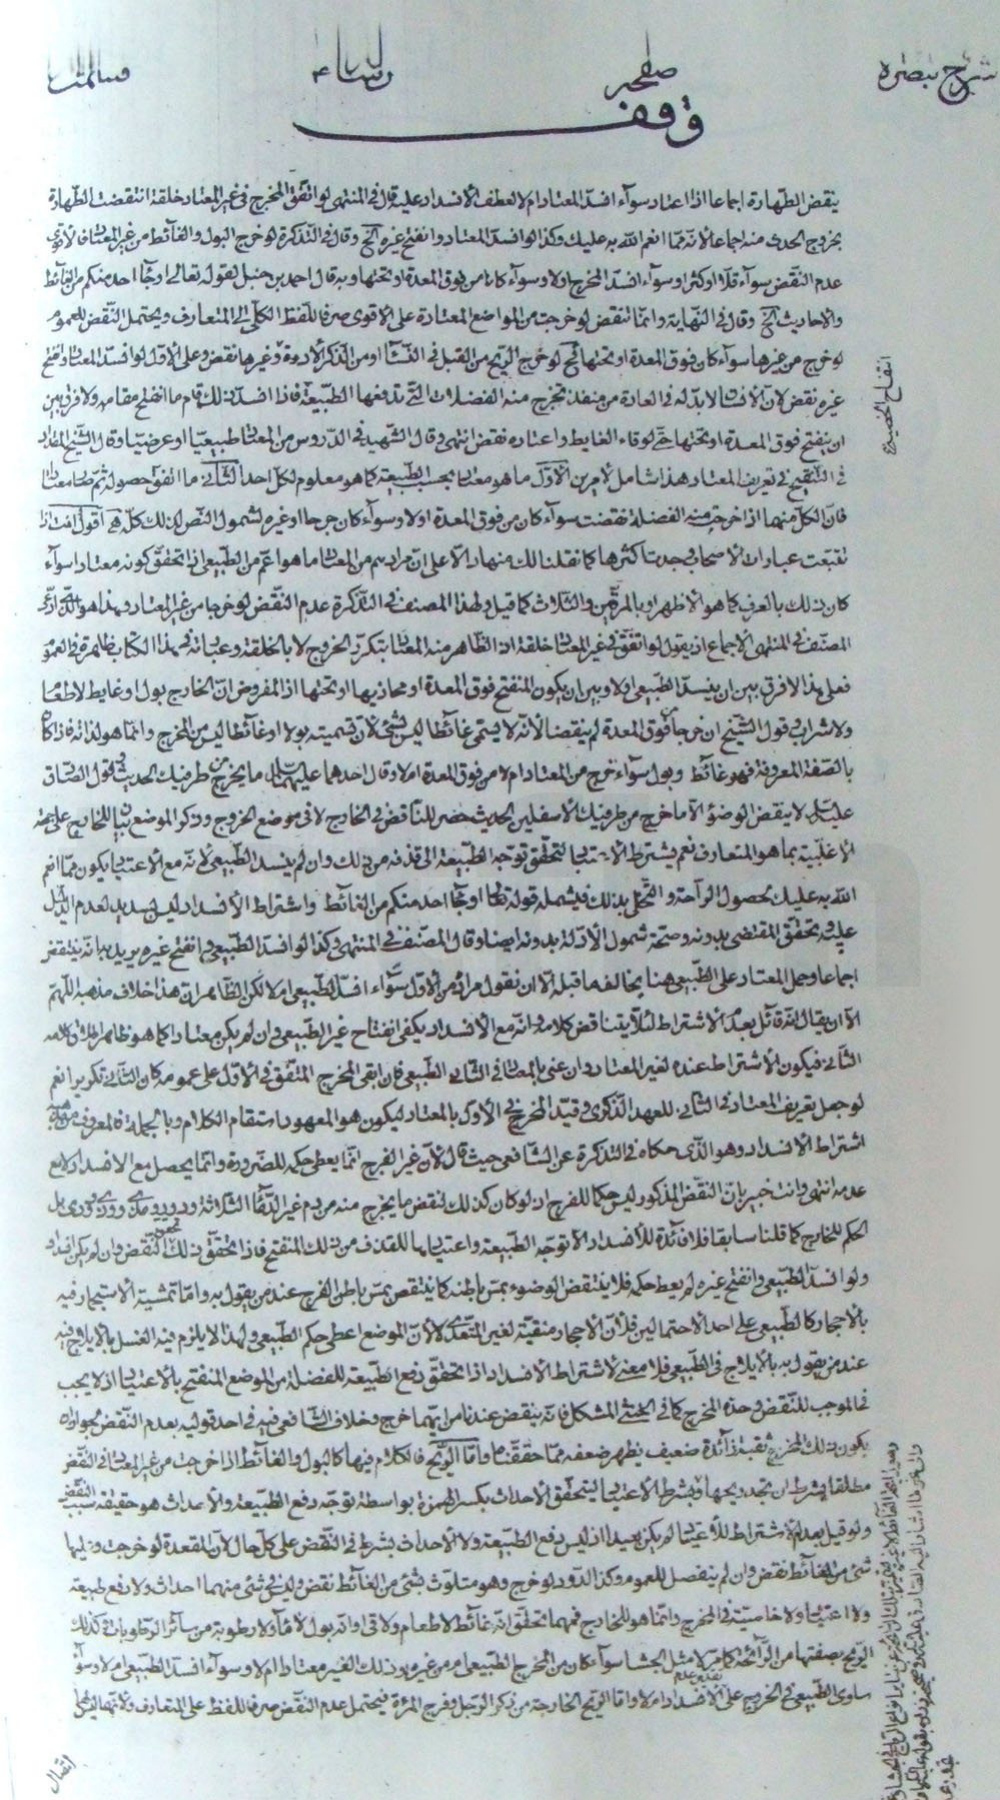 شرح تبصره
صفحه
وقف
ينقض الطهارة اجماعا اذا اعتاد سوآء افسدّ المعتاد ام لا لعطف الأفسداد عليه قال في المنتهى لو اتفق المخرج في غير المعتاد خلقة انتقضت الطهارة
بخروج الحدث منه اجماعا لأنه ممّا انعم الله به عليك وكذا لو انسدّ المعتاد وانفتح غيره الخ وقال في التذكرة لو خرج البول والغآئط من غير المعتاد فالأقوى
عدم النقض سوآء قلّا او كثرا وسوآء انسدّ المخرج اولا وسوآء كانا من فوق المعدة او تحتها وبه قال احمد بن حنبل لقوله تعالى او جآء احد منكم من الغآئط
والأحاديث الخ وقال في النهاية وانما تنقض لو خرجت من المواضع المعتادة على الأقوى صرفا للفظ الكلّي الى المتعارف ويحتمل النقض للعموم
لو خرج من غيرها سوآء كان فوق المعدة او تحتها لو خرج الريح من القبل في النسآء او من الذكر لأدرة وغيرها نقض وعلى الأول لو انسدّ المعتاد وانفتح
غيره نقض لأن الأنسان لا بدّ له في العادة من منفذ تخرج منه الفضلات التي تدفعها الطبيعة فاذا انسدّ ذلك قام ما انفتح مقامه ولا فرق بين
ان ينفتح فوق المعدة او تحتها حتى لو قاء الغايط واعتاده نقض انتهى وقال الشهيد في الدروس من المعتاد طبيعيا او عرضيا وقال الشيخ المقداد
في التنقيح في تعريف المعتاد هذا شامل لأمرين الأول ما هو معتاد بحسب الطبيعة كما هو معلوم لكل احد الثاني ما اتفق حصوله ثم صار معتادا
فان الكل منهما اذا خرجت منه الفضلة نقضت سوآء كان من فوق المعدة اولا وسوآء كان جرحا او غيره لشمول النص لذلك كله اقول
تتبعت عبارات الأصحاب وجدت اكثرها كما نقلنا لك منها دالا على ان مرادهم من المعتاد ما هو اعم من الطبيعي اذا تحقق كونه معتادا سوآء
كان ذلك بالعرف كما هو الأظهر او بالمرتين والثلاث كما قيل ولهذا المصنف في التذكرة عدم النقض لو خرجا من غير المعتاد وهذا هو الذي ادعى
المصنف في المنتهى الأجماع اذ يقول لو اتفق في غير المعتاد خلقة اذ الظاهر منه المعتاد بتكرر الخروج لا بالخلقة وعباته في هذا الكتاب ظاهرة في العموم
فعلى هذا لا فرق بين ان ينسدّ الطبيعي اولا وبين ان يكون المنفتح فوق المعدة او محاذيها او تحتها اذ المفروض ان الخارج بول او غايط لا طعاما
ولا شرابا وقول الشيخ ان خرجا من فوق المعدة لم ينقضا لأنه لا يسمى غآئطا ليس بشئ لأن تسميته بولا او غآئطا ليس من المخرج وانما هو لذاته فاذا كانا
بالصفة المعروفة فهو غآئط وبول سوآء خرج من المعتاد ام لا من فوق المعدة ام لا وقال احدهما عليهما السلام ما يخرج من طرفيك الحديث وقول الصادق
عليه السلام لا ينقض الوضوء الا ما خرج من طرفيك الأسفلين الحديث حصر للناقض في الخارج لا في موضع الخروج وذكر الموضع بيانا للخارج على جهة
الأغلبية بما هو المتعارف نعم يشترط الأعتياد لتحقق توجه الطبيعة الى قذفه من ذلك وان لم ينسد الطبيعي لأنه مع الأعتياد يكون ممّا انعم
الله به عليك لحصول الراحة والتخلي بذلك فيشمله قوله تعالى او جآء احد منكم من الغآئط واشتراط الأنسداد ليس بسديد لعدم الدليل
عليه وتحقق المقتضى بدونه وصحة شمول الأدلة بدونه ايضا وقال المصنف في المنتهى وكذا لو انسدّ الطبيعي وانفتح غيره يريد به انه ينتقض
اجماعا وحمل المعتاد على الطبيعي هنا يخالف ما قبله الا ان نقول مراده من الأول سوآء انسدّ الطبيعي ام لا لكن الظاهر ان هذا خلاف مذهبه اللّهم
الا ان يقال انه قآئل بعدم الأشتراط لئلا يتناقض كلامه وانه مع الأنسداد يكفي انفتاح غير الطبيعي وان لم يكن معتادا كما هو ظاهر اطلاق كلامه
الثاني فيكون الأشتراط عنده لغير المعتاد وان عنى بالمعتاد في الثاني الطبيعي فان ابقى المخرج المتفق في الأول على عمومه كان الثاني تكريرا نعم
لو جعل تعريف المعتاد في الثاني للعهد الذكرى وقيّد المخرج في الأول بالمعتاد ليكون هو المعهود استقام الكلام وبالجملة فالمعروف من مذهبه
اشتراط الأنسداد وهو الذي حكاه في التذكرة عن الشافعي حيث قال لأن غير الفرج انما يعطى حكمه للضرورة وانما يحصل مع الأنسداد لا مع
عدمه انتهى وانت خبير بان النقض المذكور ليس حكما للفرج اذ لو كان كذلك لنقض ما يخرج منه من دم غير الدمآء الثلاثة ودود ومذي وودي ووذي بل
الحكم للخارج كما قلنا سابقا فلا فآئدة للأنسداد الا توجه الطبيعة واعتيادها للقذف من ذلك المنفتح فاذا تحقق ذلك تحقق النقض وان لم يكن انسداد
ولو انسدّ الطبيعي وانفتح غيره لم يعط حكمه فلا ينتقض الوضوء بمسّ باطنه كما ينتقض بمسّ باطن الفرج عند من يقول به وامّا تمشية الأستجمار فيه
بالأحجار كالطبيعي على احد الأحتمالين فلأن الأحجار منقية لغير المتعدّى لا لأن الموضع اعطى حكم الطبيعي ولهذا لا يلزم فيه الغسل بالأيلاج فيه
عند من يقول به بالأيلاج في الطبيعي فلا معنى لأشتراط الأنسداد اذا تحقق دفع الطبيعة للفضلة من الموضع المنفتح بالأعتياد اذ لا يجب
في الموجب للنقض وحدة المخرج كما في الخنثى المشكل فانه ينقض عندنا من ايّهما خرج وخلاف الشافعي فيه في احد قوليه بعدم النقض لجواز ان
يكون ذلك المخرج ثقبة زآئدة ضعيف يظهر ضعفه ممّا حققناه وامّا الريح فالكلام فيها كالبول والغآئط اذا خرجت من غير المعتاد في النقض
مطلقا بشرط ان تجد ريحها ويشترط الأعتياد ليتحقق الأحداث بكسر الهمزة بواسطة توجه دفع الطبيعة والأحداث هو حقيقة سبب النقض
ولو قيل بعدم الأشتراط للأعتياد لم يكن بعيدا اذ ليس دفع الطبيعة ولا الأحداث بشرط في النقض على كل حال لأن المقعدة لو خرجت وعليها
شئ من الغآئط نقض وان لم ينفصل للعموم وكذا الدود لو خرج وهو متلوّث بشئ من الغآئط نقض وليس في شئ منهما احداث ولا دفع طبيعة
ولا اعتياد ولا خاصية في المخرج وانما هو للخارج فمهما تحقق انه غآئط لا طعام ولا قئ وانه بول لا مآء ولا رطوبة من سآئر الرطوبات وكذلك
الريح بصفتها من الرآئحة كما مرّ لا مثل الجشا سوآء كان من المخرج الطبيعي ام من غيره وذلك الغير معتادا ام لا وسوآء انسدّ الطبيعي ام لا وسوآء
ساوى الطبيعي في الخروج على تقدير عدم الأنسداد ام لا وامّا الريح الخارجة من ذكر الرجل وفرج المرئة فيحتمل عدم النقض صرفا للفظ على المتعارف ولأنها ليس
انفتاح الخصيتين